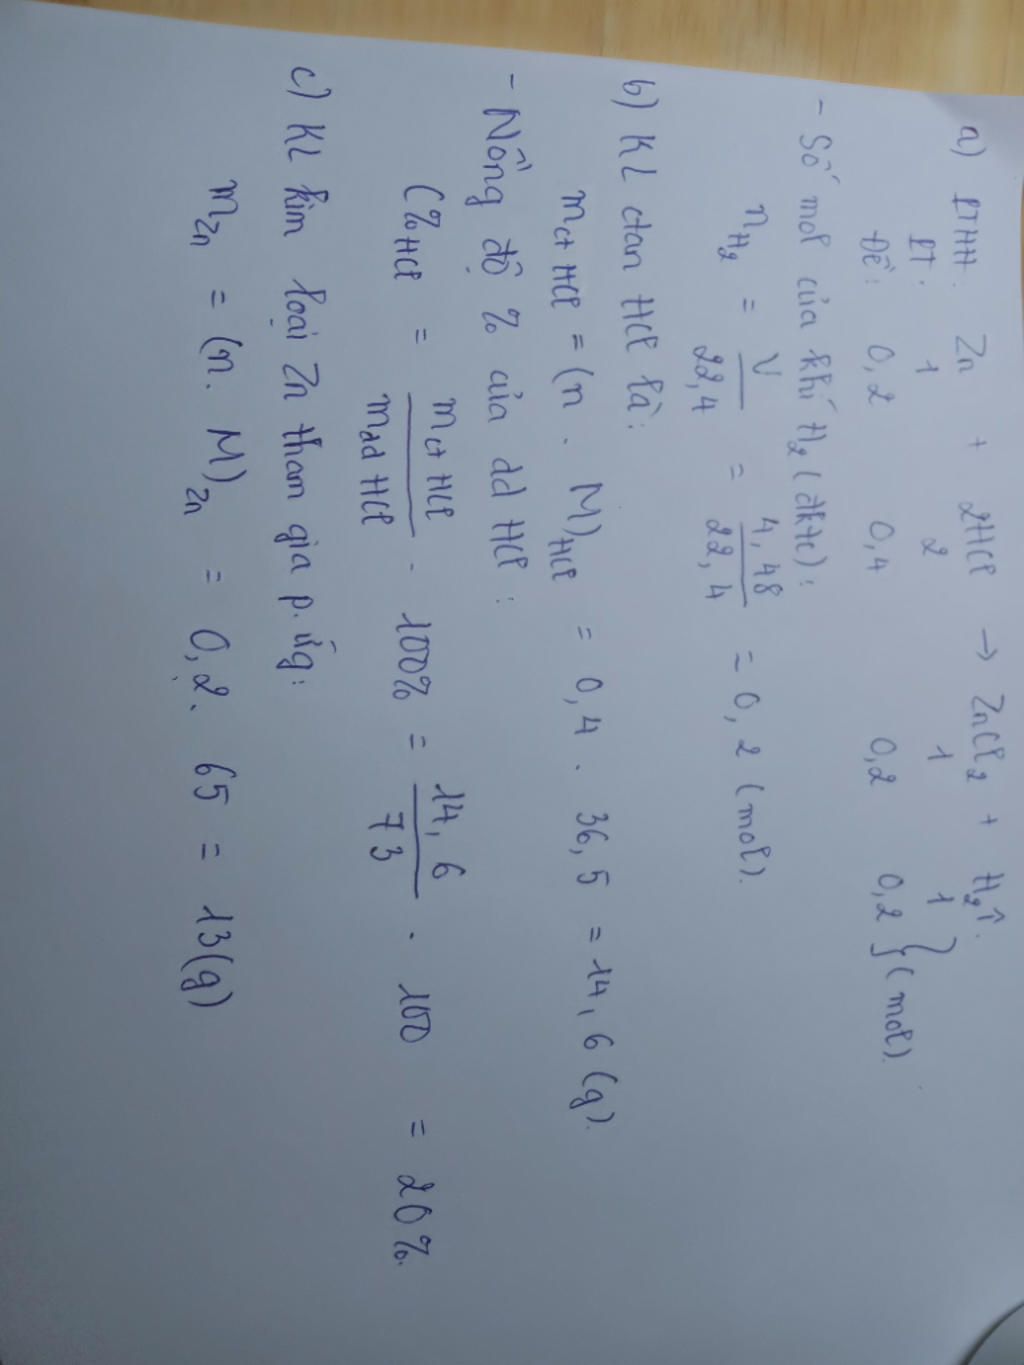 a) PTHH: Zn + 2HCl → ZnCl₂ + H₂↑.
PT: 1 2 1 1
Đề: 0,2 0,4 0,2 0,2 } (mol).
- Số mol của khí H₂ (đktc):
n_H₂ = V/22,4 = 4,48/22,4 = 0,2 (mol).
b) KL ctan HCl là:
m_ct HCl = (n . M)_HCl = 0,4 . 36,5 = 14,6 (g).
- Nồng độ % của dd HCl:
C%_HCl = m_ct HCl/m_dd HCl . 100% = 14,6/73 . 100 = 20%.
c) KL kim loại Zn tham gia p.ứg:
m_Zn = (n. M)_Zn = 0,2. 65 = 13(g)